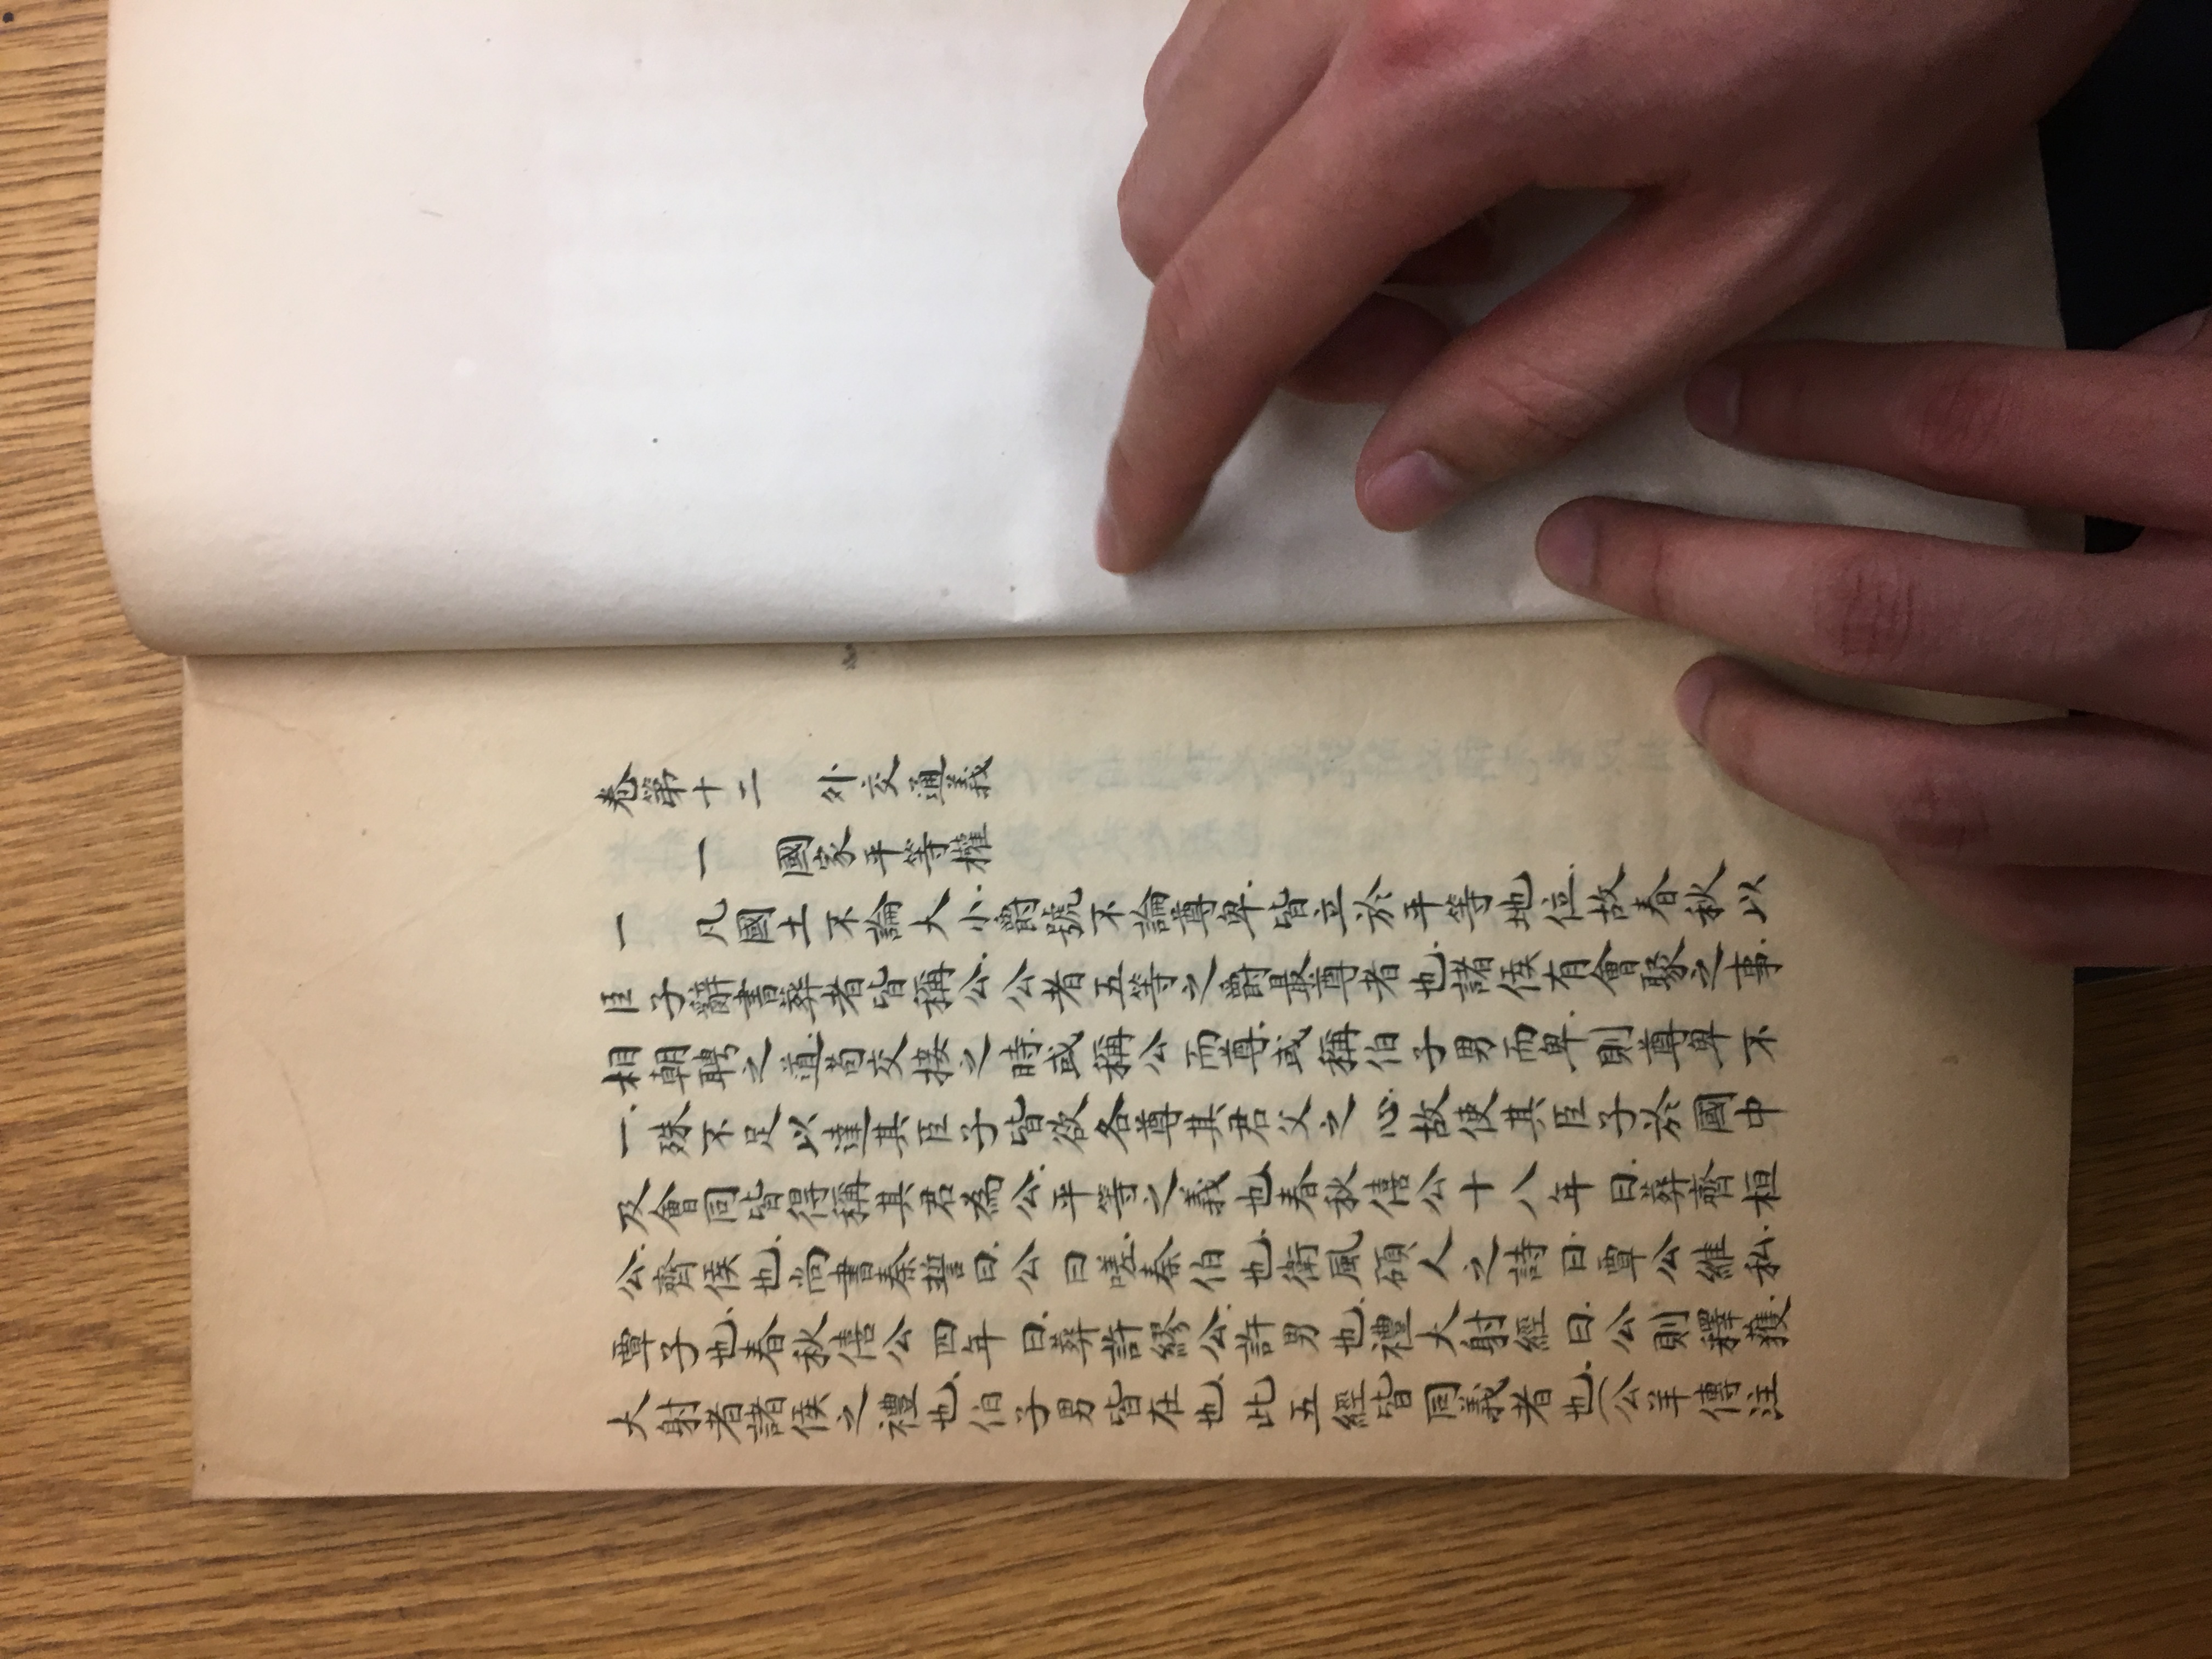 卷第十二　外交通義
一　國家平等權
一　凡國土不論大小爵號不論尊卑皆立於平等地位故春秋以
臣子辭書葬者皆稱公公者五等之爵最尊者也諸侯有會聚之事
相朝聘之道苟交接之時或稱公而尊或稱伯子男而卑則尊卑不
一殊不足以達其臣子皆欲各尊其君父之心故使其臣子於國中
及會同皆得稱其君為公平等之義也春秋僖公十八年曰葬齊桓
公齊侯也尚書秦誓曰公曰嗟秦伯也衛風碩人之詩曰覃公維私
覃子也春秋僖公四年曰葬許繆公許男也禮大射經曰公則釋獲
大射者諸侯之禮也伯子男皆在也此五經皆同義者也(公羊傳注